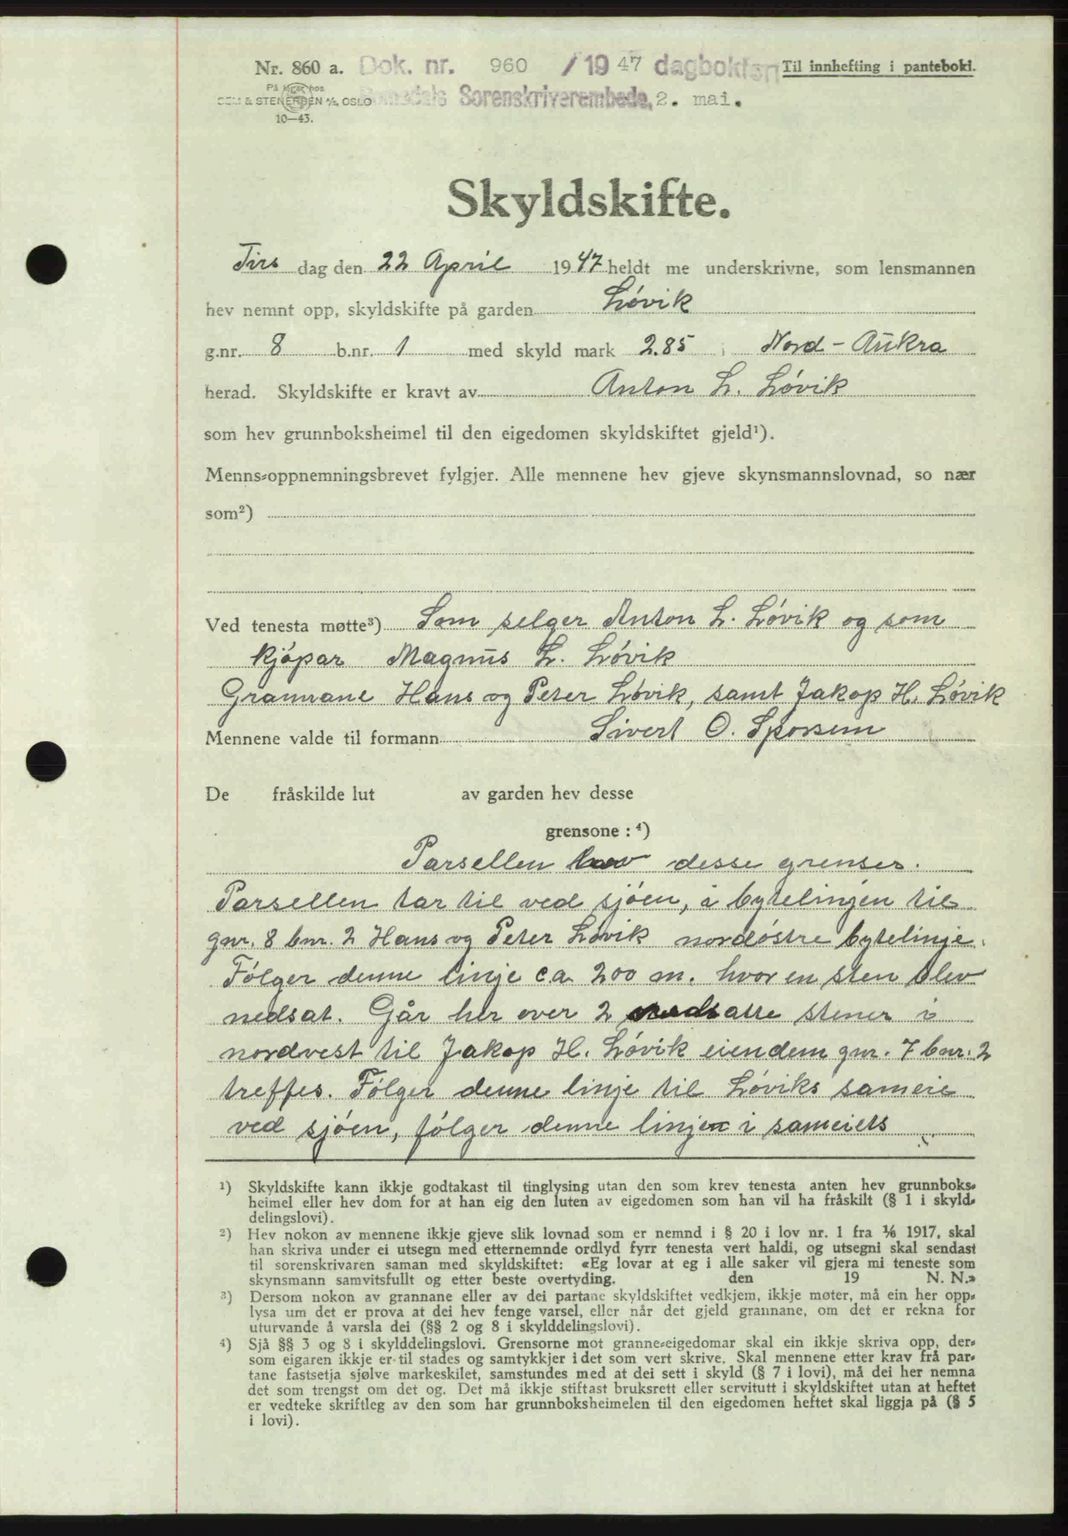 Nr. 860 a. Dok. nr. 960 / 19 47 dagboken Til innhefting i pantebok.
På lager hos
SEM & STENERSEN A/S, OSLO Romsdals Sorenskriverembede, 2. mai.
10—43.
Skyldskifte.
Tirs dag den 22 April 1947 heldt me underskrivne, som lensmannen
hev nemnt opp, skyldskifte på garden Lóvik
g.nr. 8 b.nr. 1 med skyld mark 2.85 i Nord-Aukra
herad. Skyldskifte er kravt av Anton L. Lóvik
som hev grunnboksheimel til den eigedomen skyldskiftet gjeld¹).
Menns-oppnemningsbrevet fylgjer. Alle mennene hev gjeve skynsmannslovnad, so nær
som²)
Ved tenesta møtte³) Som selger Anton L. Lóvik og som
kjópar Magnus L. Lóvik
Grannane Hans og Peter Lóvik, samt Jakop H. Lóvik
Mennene valde til formann Sivert O. Sporsem
De fråskilde lut av garden hev desse
grensone : ⁴)
Parsellen hev desse grenser.
Parsellen tar til ved sjóen, i bytelinjen til
gnr. 8 bnr. 2 Hans og Peter Lóvik nordóstre bytelinje.
Fólger denne linje ca 200 m. hvor en sten blev
nedsat. Går her over 2 nedsatte stener i
nordvest til Jakop H. Lóvik eiendem gnr. 7 bnr. 2
treffes. Fólger denne linje til Lóviks sameie
ved sjóen, fólger denne linjen i sameiets
¹) Skyldskifte kann ikkje godtakast til tinglysing utan den som krev tenesta anten hev grunnboks-
heimel eller hev dom for at han eig den luten av eigedomen som han vil ha fråskilt (§ 1 i skyld-
delingslovi).
²) Hev nokon av mennene ikkje gjeve slik lovnad som er nemnd i § 20 i lov nr. 1 fra 1/6 1917, skal
han skriva under ei utsegn med etternemnde ordlyd fyrr tenesta vert haldi, og utsegni skal sendast
til sorenskrivaren saman med skyldskiftet: «Eg lovar at eg i alle saker vil gjera mi teneste som
skynsmann samvitsfullt og etter beste overtyding. den 19 N. N.»
³) Dersom nokon av grannane eller av dei partane skyldskiftet vedkjem, ikkje møter, må ein her opp-
lysa um det er prova at dei hev fenge varsel, eller når det gjeld grannane, om det er rekna for
uturvande å varsla dei (§§ 2 og 8 i skylddelingslovi).
⁴) Sjå §§ 3 og 8 i skylddelingslovi. Grensorne mot granne-eigedomar skal ein ikkje skriva opp, der-
som eigaren ikkje er til stades og samtykkjer i det som vert skrive. Skal mennene etter krav frå par-
tane fastsetja sjølve markeskilet, samstundes med at dei sett i skyld (§ 7 i lovi), må dei her nemna
det som trengst om det og. Det må ikkje stiftast bruksrett eller servitutt i skyldskiftet utan at heftet
er vedteke skriftleg av den som har grunnboksheimelen til den eigedomen heftet skal liggja på (§ 5
i lovi).